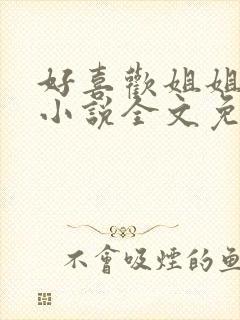 好喜歡姐姐
小說全文免
不會吸煙的魚